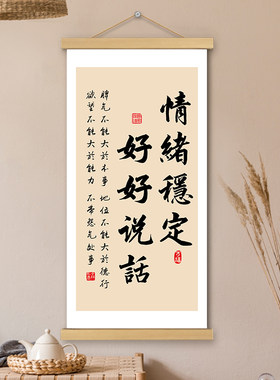 情緒穩定
好好说話
脾气不能大於本事 地位不能大於德行
欲望不能大於能力 不帶怒气做事